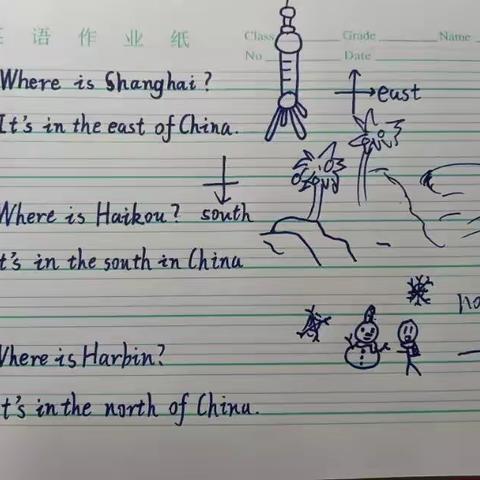 语 作 业 纸
Class Grade Name
No Date
Where is Shanghai?
east
It's in the east of China.
Where is Haikou? south
t's in the south in China
Where is Harbin?
t's in the north of China.